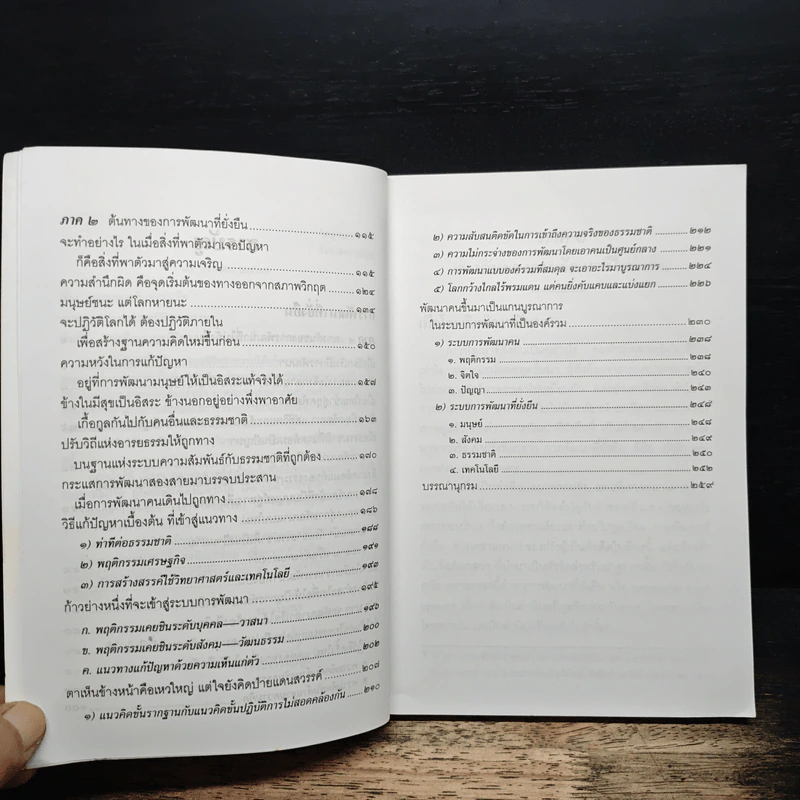 ภาค ๒ ต้นทางของการพัฒนาที่ยั่งยืน ๑๑๕
จะทำอย่างไร ในเมื่อสิ่งที่พาตัวมาเจอปัญหา
ก็คือสิ่งที่พาตัวมาสู่ความเจริญ ๑๑๕
ความสำนึกผิด คือจุดเริ่มต้นของทางออกจากสภาพวิกฤต ๑๒๔
มนุษย์ชนะ แต่โลกหายนะ ๑๓๔
จะปฏิวัติโลกได้ ต้องปฏิวัติภายใน
เพื่อสร้างฐานความคิดใหม่ขึ้นก่อน ๑๕๐
ความหวังในการแก้ปัญหา
อยู่ที่การพัฒนามนุษย์ให้เป็นอิสระแท้จริงได้ ๑๕๗
ข้างในมีสุขเป็นอิสระ ข้างนอกอยู่อย่างพึ่งพาอาศัย
เกื้อกูลกันไปกับคนอื่นและธรรมชาติ ๑๖๓
ปรับวิถีแห่งอารยธรรมให้ถูกทาง
บนฐานแห่งระบบความสัมพันธ์กับธรรมชาติที่ถูกต้อง ๑๗๐
กระแสการพัฒนาสองสายมาบรรจบประสาน
เมื่อการพัฒนาคนเดินไปถูกทาง ๑๗๘
วิธีแก้ปัญหาเบื้องต้น ที่เข้าสู่แนวทาง ๑๘๖
๑) ท่าทีต่อธรรมชาติ ๑๘๘
๒) พฤติกรรมเศรษฐกิจ ๑๙๑
๓) การสร้างสรรค์ใช้วิทยาศาสตร์และเทคโนโลยี ๑๙๓
ก้าวย่างหนึ่งที่จะเข้าสู่ระบบการพัฒนา ๑๙๕
ก. พฤติกรรมเคยชินระดับบุคคล—วาสนา ๑๙๖
ข. พฤติกรรมเคยชินระดับสังคม—วัฒนธรรม ๒๐๐
ค. แนวทางแก้ปัญหาด้วยความเห็นแก่ตัว ๒๐๒
ตาเห็นข้างหน้าคือเหวใหญ่ แต่ใจยังคิดป่ายแดนสวรรค์ ๒๐๗
๑) แนวคิดขั้นรากฐานกับแนวคิดขั้นปฏิบัติการไม่สอดคล้องกัน ๒๑๐
๒) ความสับสนติดขัดในการเข้าถึงความจริงของธรรมชาติ ๒๑๒
๓) ความไม่กระจ่างของการพัฒนาโดยเอาคนเป็นศูนย์กลาง ๒๒๑
๔) การพัฒนาแบบองค์รวมที่สมดุล จะเอาอะไรมาบูรณาการ ๒๒๔
๕) โลกกว้างไกลไร้พรมแดน แต่คนยิ่งคับแคบและแบ่งแยก ๒๒๖
พัฒนาคนขึ้นมาเป็นแกนบูรณาการ
ในระบบการพัฒนาที่เป็นองค์รวม ๒๓๐
๑) ระบบการพัฒนาคน ๒๓๘
๑. พฤติกรรม ๒๓๘
๒. จิตใจ ๒๔๐
๓. ปัญญา ๒๔๓
๒) ระบบการพัฒนาที่ยั่งยืน ๒๔๘
๑. มนุษย์ ๒๔๘
๒. สังคม ๒๔๙
๓. ธรรมชาติ ๒๕๐
๔. เทคโนโลยี ๒๕๒
บรรณานุกรม ๒๕๙